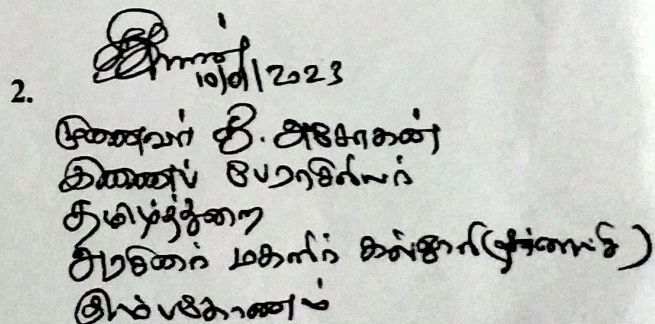 10/8/2023
2.
முனைவர் சீ. அசோகன்
இணைப் பேராசிரியர்
தமிழ்த்துறை
அரசினர் மகளிர் கல்லூரி (தன்னாட்சி)
கும்பகோணம்